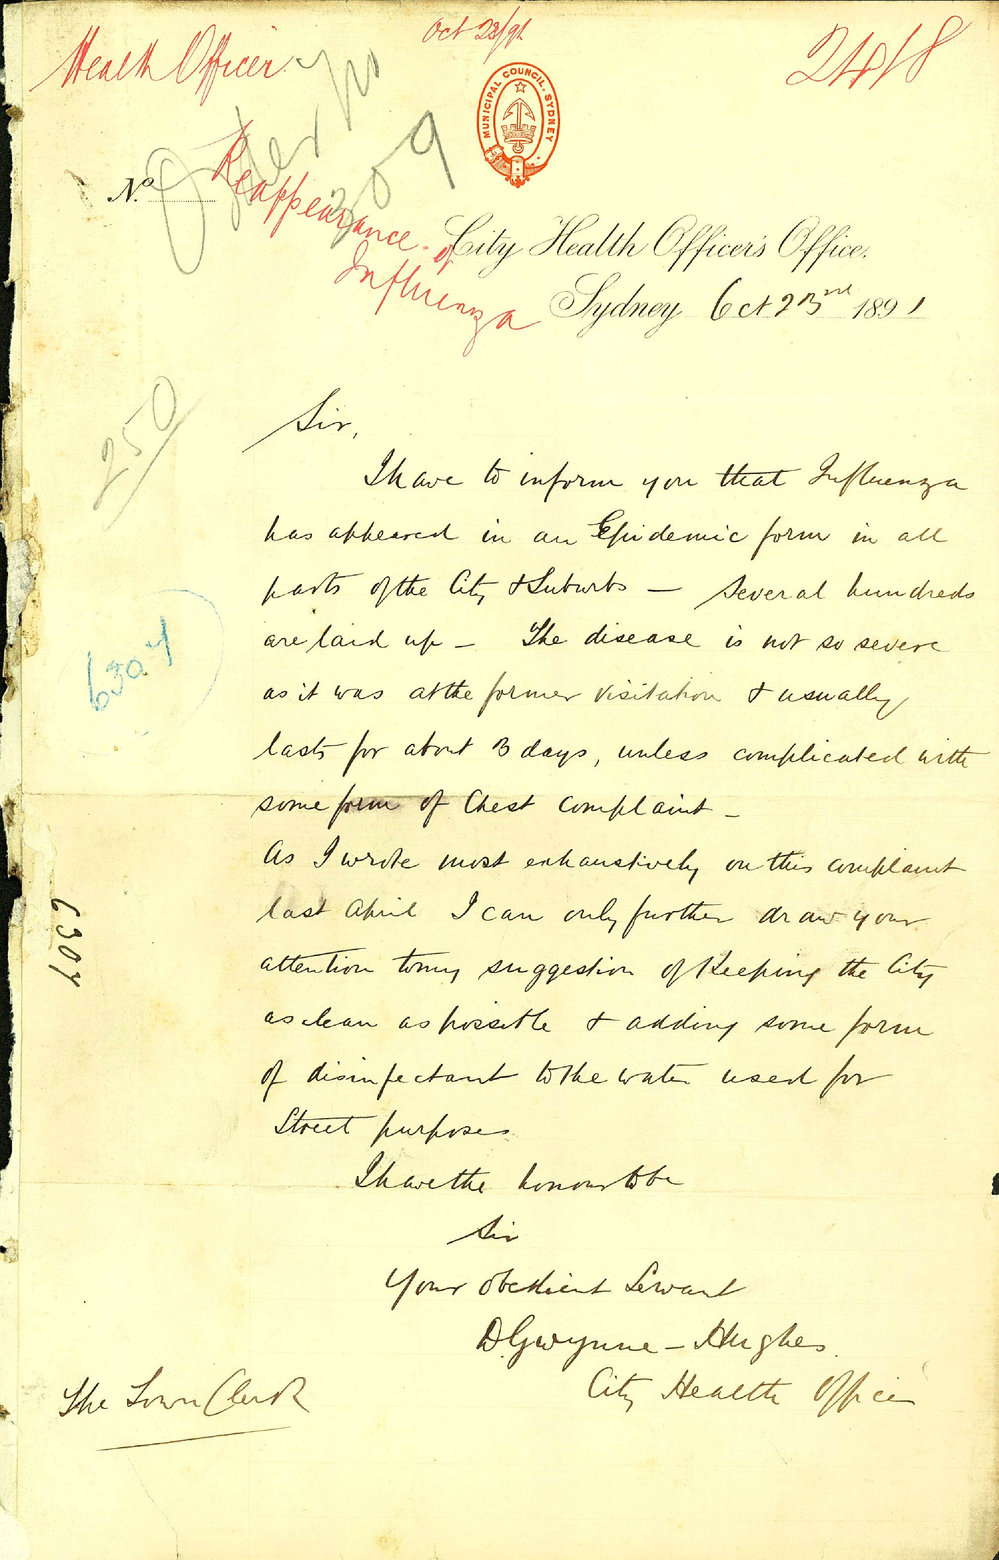 Oct 23/91
Health Officer.
2418
MUNICIPAL COUNCIL. SYDNEY
No.
309
Reappearance of
Influenza
City Health Officer's Office.
Sydney Oct 23rd 1891
250
Sir,
I have to inform you that Influenza
has appeared in an Epidemic form in all
parts of the City & Suburbs — Several hundreds
are laid up — The disease is not so severe
as it was at the former visitation & usually
lasts for about 3 days, unless complicated with
some form of Chest complaint —
As I wrote most exhaustively on this complaint
last April I can only further draw your
attention to my suggestion of Keeping the City
as clean as possible & adding some form
of disinfectant to the water used for
Street purposes
I have the honour to be
Sir
Your obedient Servant
D. Gwynne-Hughes.
City Health Officer
The Town Clerk
6307
6307